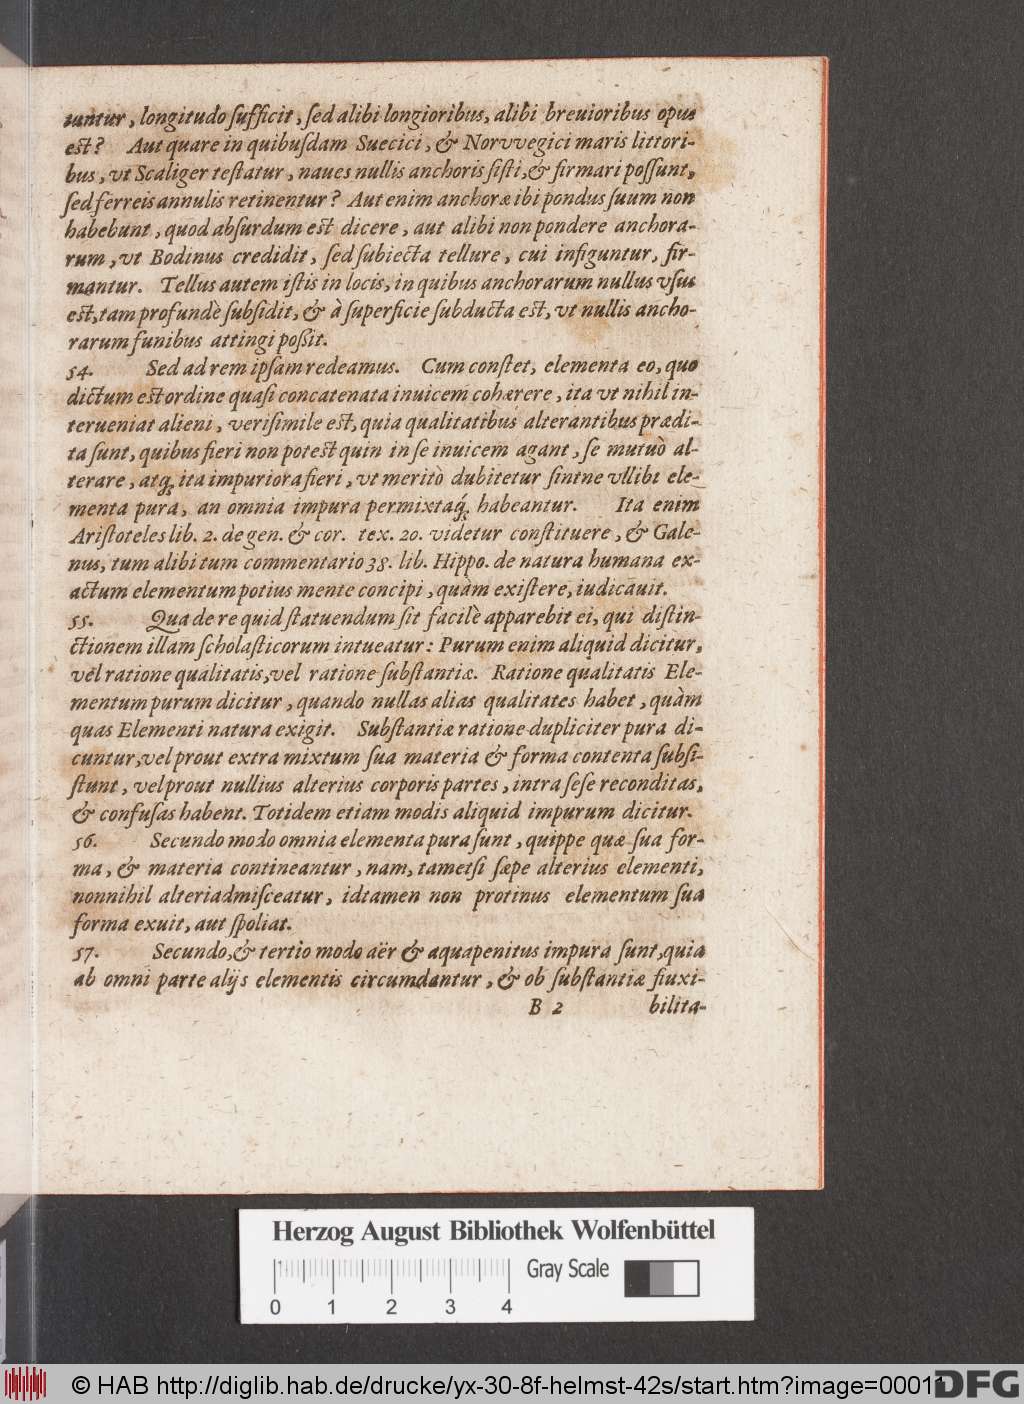 untur, longitudo ſufficit, ſed alibi longioribus, alibi breuioribus opus
est? Aut quare in quibuſdam Suecici, & Norvvegici maris littori-
bus, vt Scaliger teſtatur, naues nullis anchoris ſiſti, & firmari poſſunt,
ſed ferreis annulis retinentur? Aut enim anchoræ ibi pondus ſuum non
habebunt, quod abſurdum est dicere, aut alibi non pondere anchora-
rum, vt Bodinus credidit, ſed ſubiecta tellure, cui infiguntur, fir-
mantur. Tellus autem iſtis in locis, in quibus anchorarum nullus vſus
est, tam profundè ſubſidit, & à ſuperficie ſubducta est, vt nullis ancho-
rarum funibus attingi poſsit.
54. Sed ad rem ipſam redeamus. Cum conſtet, elementa eo, quo
dictum est ordine quaſi concatenata inuicem cohærere, ita vt nihil in-
terueniat alieni, veriſimile est, quia qualitatibus alterantibus prædi-
ta ſunt, quibus fieri non potest quin in ſe inuicem agant, ſe mutuò al-
terare, atq́; ita impuriora fieri, vt meritò dubitetur ſintne vllibi ele-
menta pura, an omnia impura permixtaq́; habeantur. Ita enim
Ariſtoteles lib. 2. de gen. & cor. tex. 20. videtur conſtituere, & Gale-
nus, tum alibi tum commentario 38. lib. Hippo. de natura humana ex-
actum elementum potius mente concipi, quàm exiſtere, iudicauit.
55. Qua de re quid ſtatuendum ſit facilè apparebit ei, qui diſtin-
ctionem illam ſcholaſticorum intueatur: Purum enim aliquid dicitur,
vel ratione qualitatis, vel ratione ſubſtantiæ. Ratione qualitatis Ele-
mentum purum dicitur, quando nullas alias qualitates habet, quàm
quas Elementi natura exigit. Subſtantiæ ratione dupliciter pura di-
cuntur, vel prout extra mixtum ſua materia & forma contenta ſubſi-
ſtunt, vel prout nullius alterius corporis partes, intra ſeſe reconditas,
& confuſas habent. Totidem etiam modis aliquid impurum dicitur.
56. Secundo modo omnia elementa pura ſunt, quippe quæ ſua for-
ma, & materia contineantur, nam, tametſi ſæpe alterius elementi,
nonnihil alteri admiſceatur, id tamen non protinus elementum ſua
forma exuit, aut ſpoliat.
57. Secundo, & tertio modo aër & aqua penitus impura ſunt, quia
ab omni parte alijs elementis circumdantur, & ob ſubſtantiæ fluxi-
B 2 bilita-
Herzog August Bibliothek Wolfenbüttel
Gray Scale
0 1 2 3 4
© HAB http://diglib.hab.de/drucke/yx-30-8f-helmst-42s/start.htm?image=00011
DFG